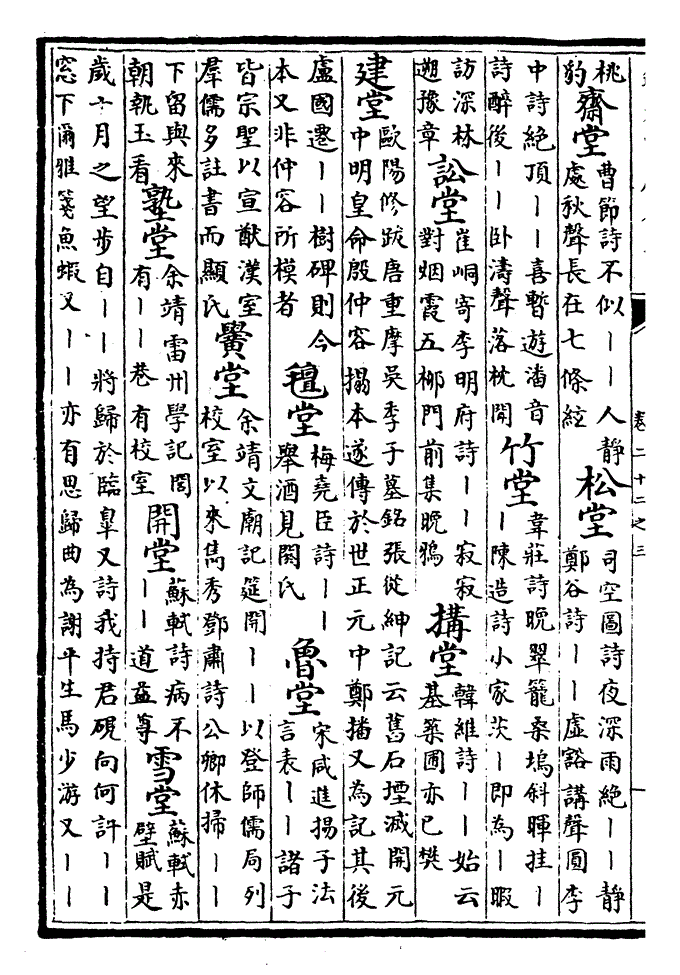 桃
豹
齋堂
曹節詩不似丨丨人靜
處秋聲長在七條絃
松堂
司空圖詩夜深雨絕丨丨靜
鄭谷詩丨丨虛豁講聲圓李
中詩絕頂丨丨喜暫遊潘音
詩醉後丨丨卧濤聲落枕閒
竹堂
韋莊詩晚翠籠桑塢斜暉挂丨
丨陳造詩小家茨丨即為丨暇
訪深林
遡豫章
訟堂
崔峒寄李明府詩丨丨寂寂
對烟霞五柳門前集晚鴉
搆堂
韓維詩丨丨始云
基築圃亦已樊
建堂
歐陽修跋唐重摩吳季子墓銘張從紳記云舊石堙滅開元
中明皇命殷仲容搨本遂傳於世正元中鄭播又為記其後
盧國遷丨丨樹碑則今
本又非仲容所模者
氊堂
梅堯臣詩丨丨
舉酒見閼氏
魯堂
宋咸進揚子法
言表丨丨諸子
皆宗聖以宣猷漢室
羣儒多註書而顯氏
黌堂
余靖文廟記筵開丨丨以登師儒局列
校室以來雋秀鄧肅詩公卿休掃丨丨
下留與來
朝執玉看
塾堂
余靖雷州學記閭
有丨丨巷有校室
開堂
蘇軾詩病不
丨丨道益尊
雪堂
蘇軾赤
壁賦是
歲十月之望步自丨丨將歸於臨皋又詩我持君硯向何許丨丨
窓下爾雅箋魚蝦又丨丨亦有思歸曲為謝平生馬少游又丨丨
卷二十二之三